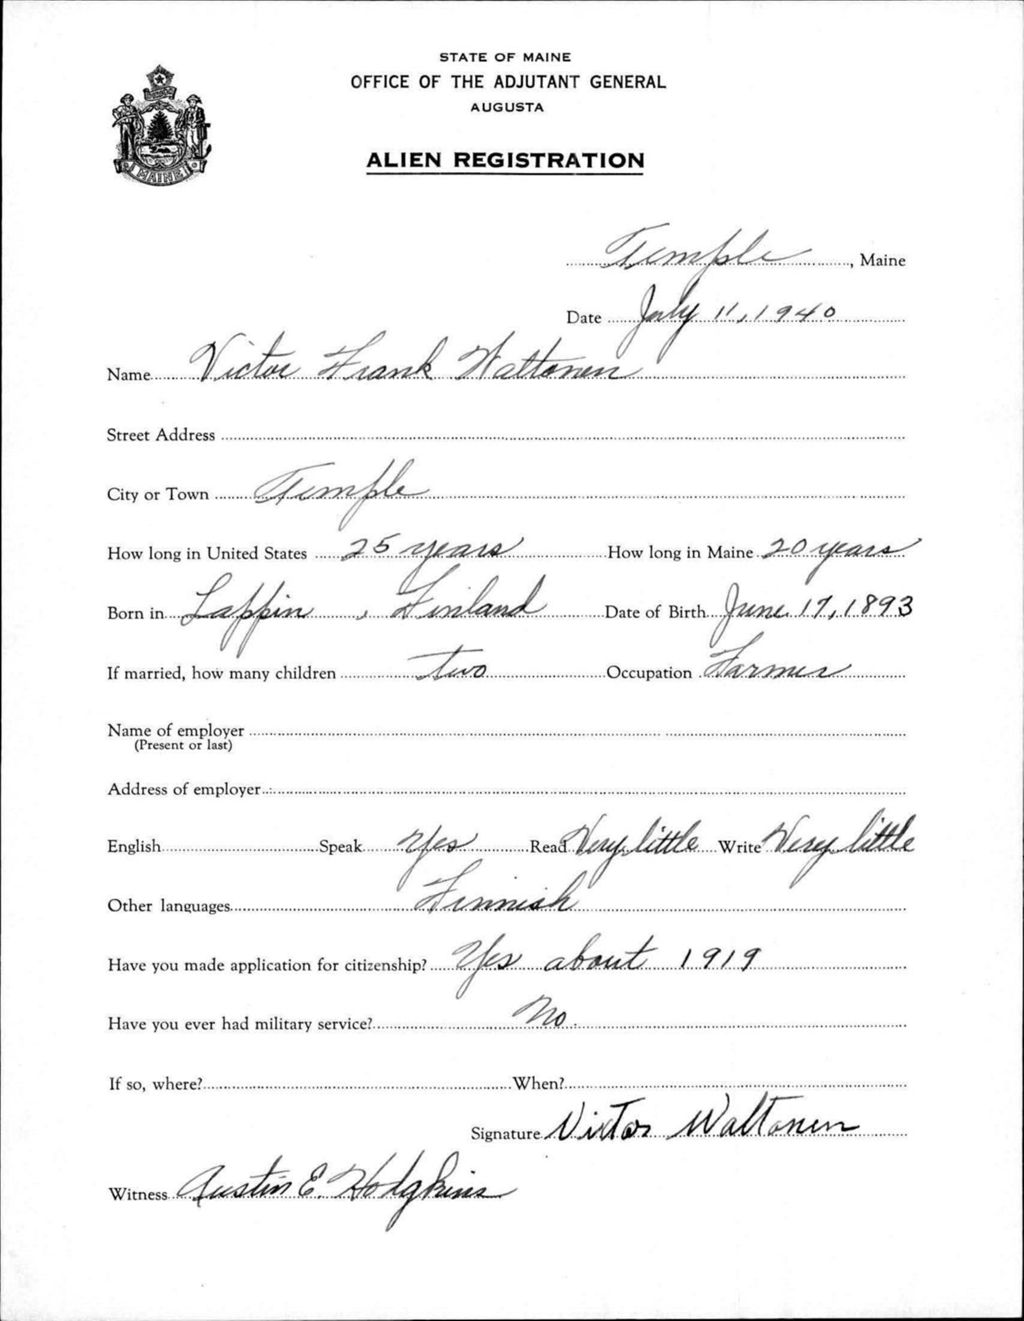 STATE OF MAINE
OFFICE OF THE ADJUTANT GENERAL
AUGUSTA
ALIEN REGISTRATION
MAINE
Temple, Maine
Date July 11, 1940
Name Victor Frank Waltonen
Street Address
City or Town Temple
How long in United States 25 years How long in Maine 20 years
Born in Lappin, Finland Date of Birth June 17, 1893
If married, how many children two Occupation Farmer
Name of employer
(Present or last)
Address of employer
English Speak Yes Read Very little Write Very little
Other languages Finnish
Have you made application for citizenship? Yes about 1919
Have you ever had military service? No.
If so, where? When?
Signature Victor Waltonen
Witness Austin E. Hodgkins